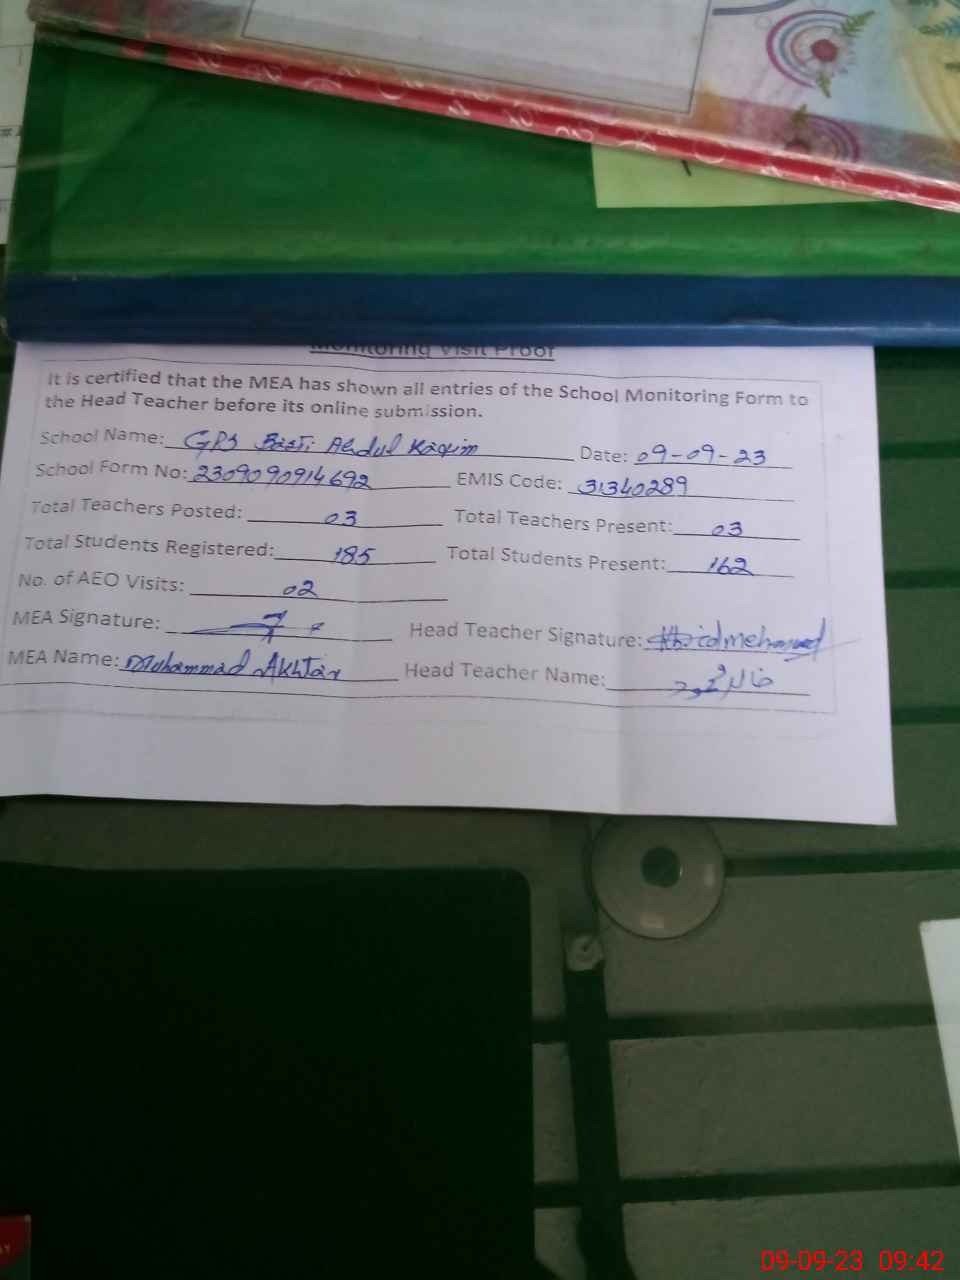 Monitoring Visit Proof
It is certified that the MEA has shown all entries of the School Monitoring Form to
the Head Teacher before its online submission.
School Name: GPS Basti Abdul Karim Date: 09-09-23
School Form No: 2309090914692 EMIS Code: 31340289
Total Teachers Posted: 03 Total Teachers Present: 03
Total Students Registered: 185 Total Students Present: 162
No. of AEO Visits: 02
MEA Signature: Head Teacher Signature: Khalid mehmood
MEA Name: Muhammad Akhtar Head Teacher Name: خالد محمود
09-09-23 09:42